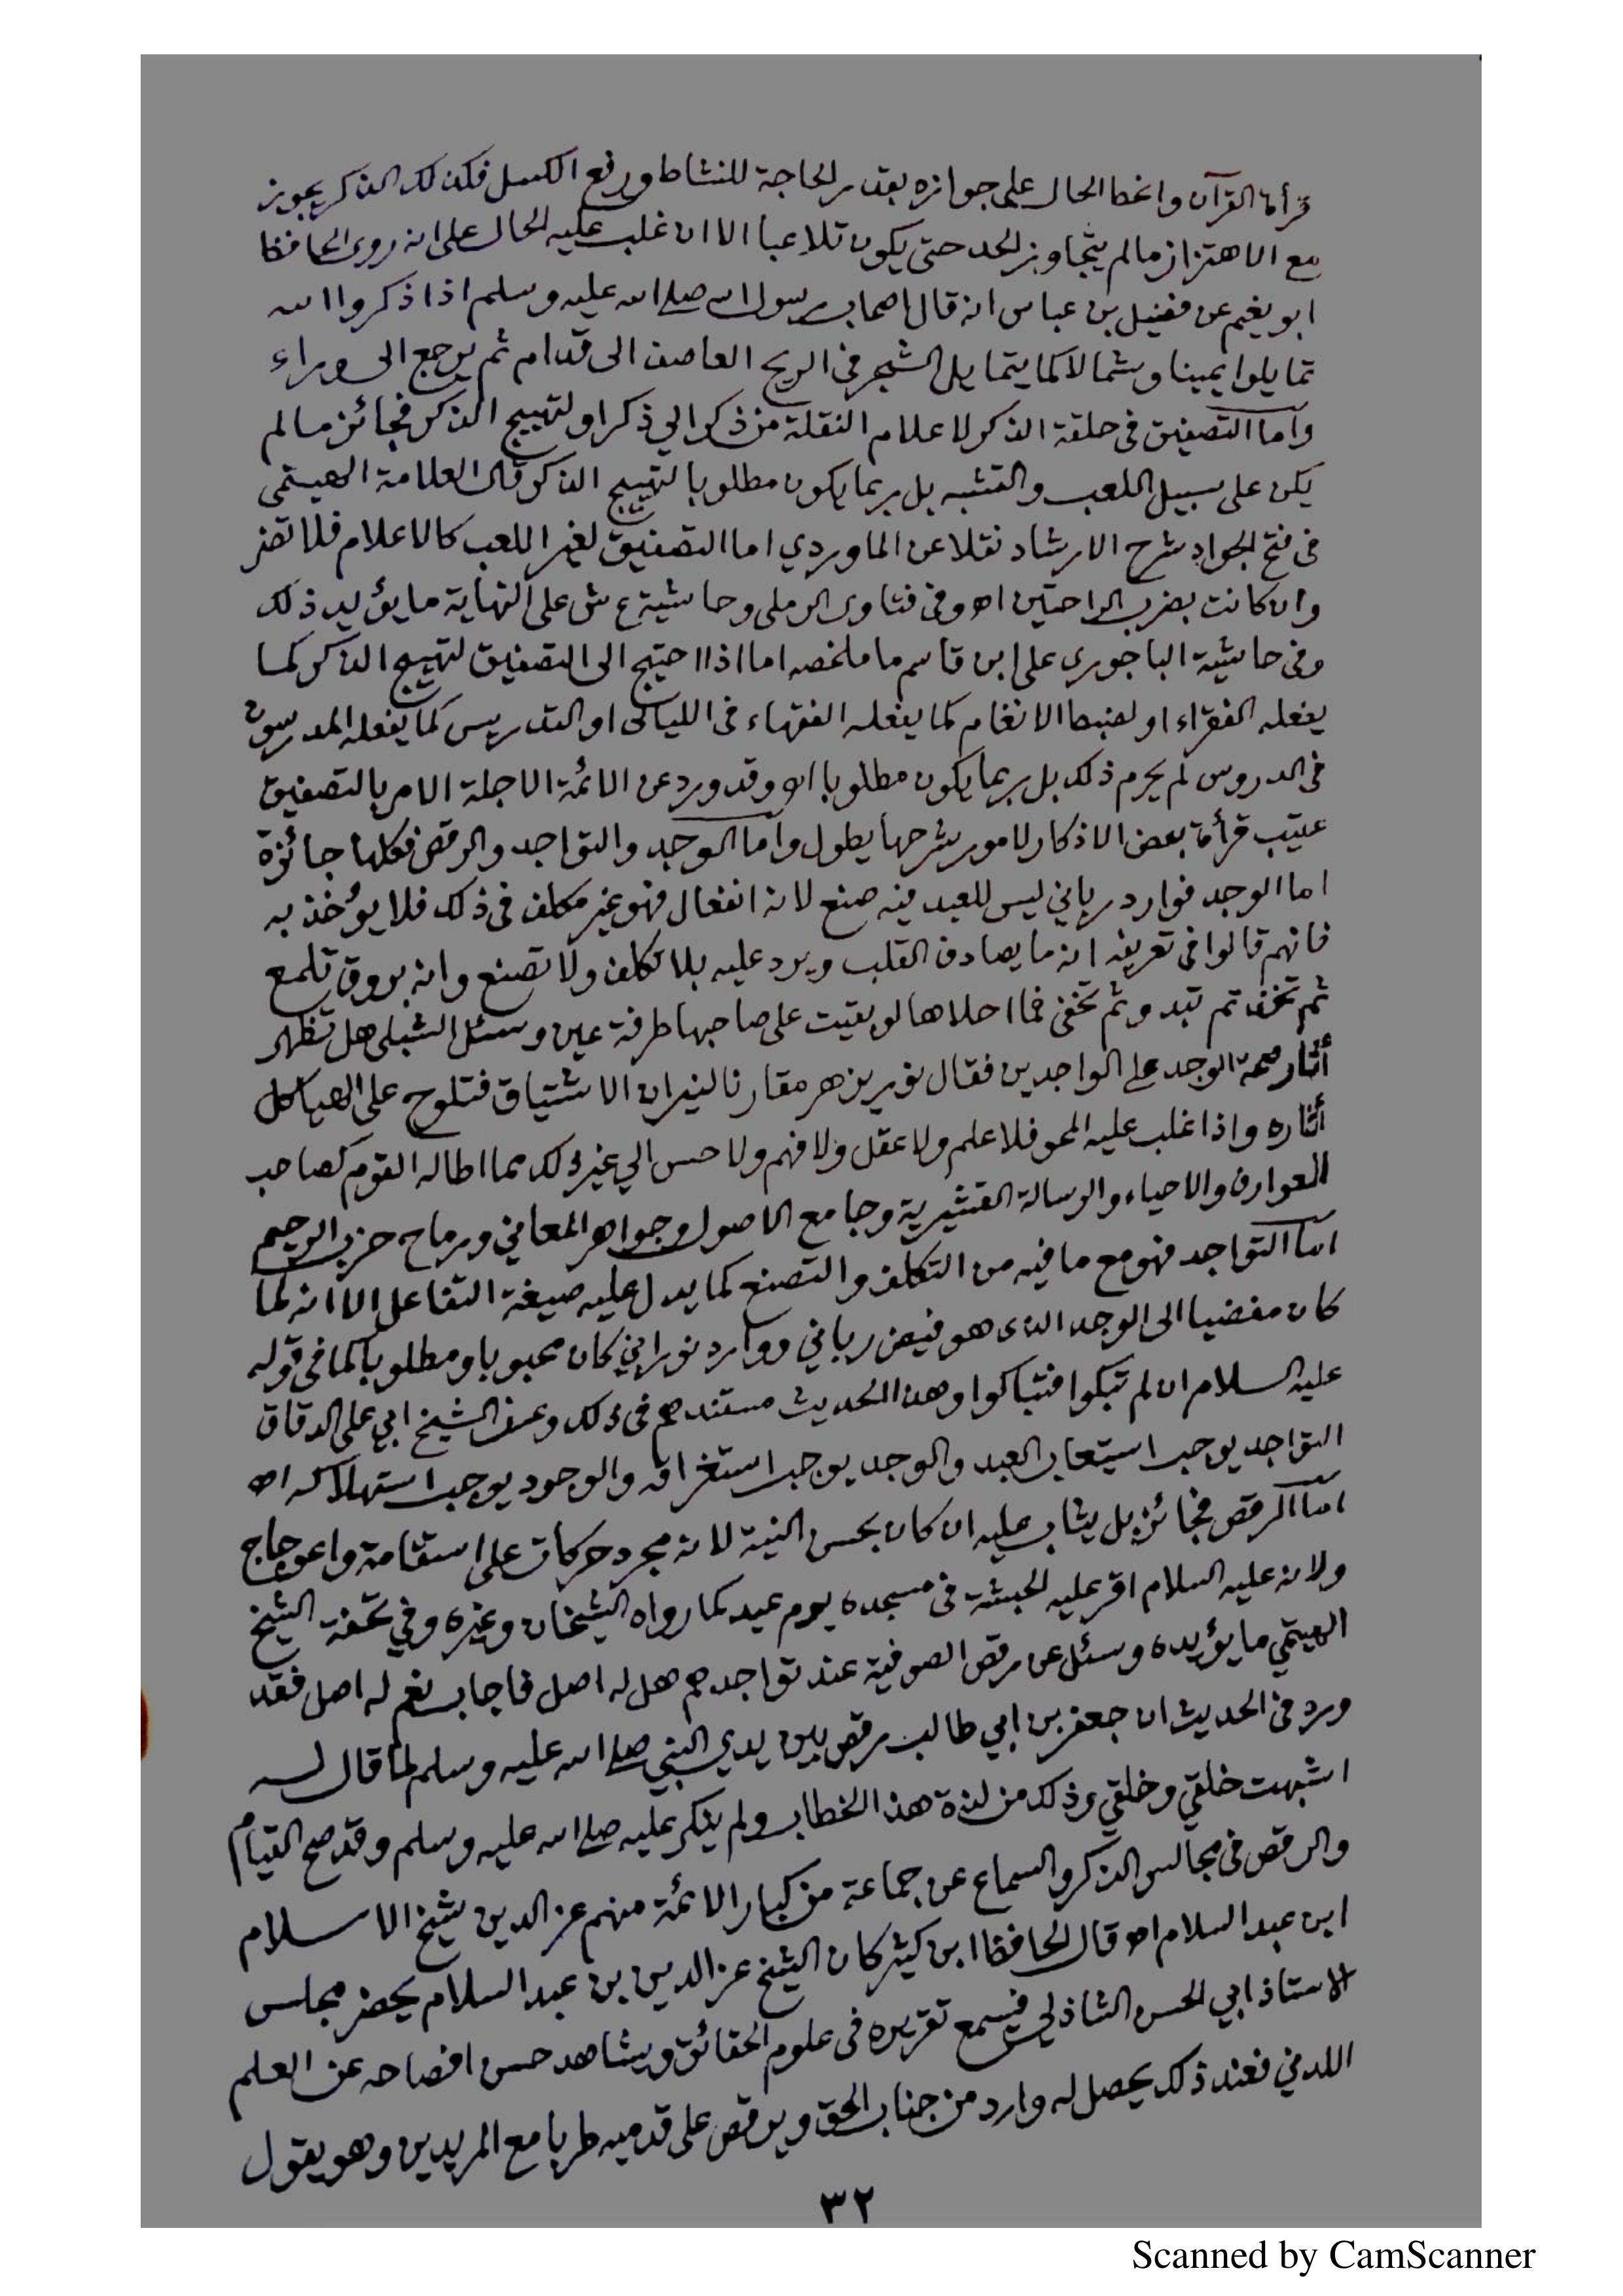 قرأة القرآن وانحط الحال على جوازه بقدر الحاجة للنشاط ورفع الكسل فكذلك الذكر يجوز
مع الاهتزاز مالم يتجاوز الحد حتى يكون تلاعبا الا ان غلب عليه الحال على انه روى الحافظ
ابو نعيم عن فضيل بن عباس انه قال اصحاب رسول الله صلى الله عليه وسلم اذا ذكروا الله
تمايلوا يمينا وشمالا كما يتمايل الشجر في الريح العاصف الى قدام ثم يرجع الى وراء
وأما التصفيق فى حلقة الذكر لاعلام النقلة من ذكر الي ذكر او لتهييج الذكر فجائز مالم
يكن على سبيل اللعب والتشبه بل ربما يكون مطلوبا لتهييج الذكر قال العلامة الهيتمى
فى فتح الجواد شرح الارشاد نقلا عن الماوردي اما التصفيق لغير اللعب كالاعلام فلا تضر
وان كانت بضرب الراحتين اه وفى فتاوى الرملى وحاشية ع ش على النهاية ما يؤيد ذلك
وفى حاشية الباجورى على ابن قاسم ما ملخصه اما اذا احتيج الى التصفيق لتهييج الذكر كما
يفعله الفقراء او لضبط الانغام كما يفعله الفقهاء فى الليالى او التدريس كما يفعله المدرسون
فى الدروس لم يحرم ذلك بل ربما يكون مطلوبا اه وقد ورد عن الائمة الاجلة الامر بالتصفيق
عقيب قرأة بعض الاذكار لامور شرحها يطول وأما الوجد والتواجد والرقص فكلها جائزة
اما الوجد فوارد رباني ليس للعبد فيه صنع لانه انفعال فهو غير مكلف فى ذلك فلا يؤخذ به
فانهم قالوا فى تعريفه انه ما يصادف القلب ويرد عليه بلا تكلف ولا تصنع وانه بروق تلمع
ثم تخفى ثم تبدو ثم تخفى فما احلاها لو بقيت على صاحبها طرفة عين وسئل الشبلى هل تظهر
أثار صحة الوجد على الواجدين فقال نور يزهر مقارنا لنيران الاشتياق فتلوح على الهياكل
أثاره واذا غلب عليه المحو فلا علم ولا عقل ولا فهم ولا حس الي غير ذلك مما اطاله القوم كصاحب
العوارف والاحياء والرسالة القشيرية وجامع الاصول وجواهر المعاني ورماح حزب الرحيم
امّا التواجد فهو مع ما فيه من التكلف والتصنع كما يدل عليه صيغة التفاعل الا انه لما
كان مفضيا الى الوجد الذى هو فيض رباني ووارد نوراني كان محبوبا ومطلوبا كما فى قوله
عليه السلام ان لم تبكوا فتباكوا وهذا الحديث مستندهم فى ذلك وعن الشيخ ابي على الدقاق
التواجد يوجب استيعاب العبد والوجد يوجب استغراقه والوجود يوجب استهلاكه اه
امّا الرقص فجائز بل يثاب عليه ان كان بحسن النية لانه مجرد حركات على استقامة واعوجاج
ولانه عليه السلام اقر عليه الحبشة فى مسجده يوم عيد كما رواه الشيخان وغيره وفي تحفة الشيخ
الهيتمي ما يؤيده وسئل عن رقص الصوفية عند تواجدهم هل له اصل فاجاب نعم له اصل فقد
ورد فى الحديث ان جعفر بن ابي طالب رقص بين يدي النبي صلى الله عليه وسلم لما قال له
اشبهت خلقي وخلقي وذلك من لذة هذا الخطاب ولم ينكر عليه صلى الله عليه وسلم وقد صح القيام
والرقص فى مجالس الذكر والسماع عن جماعة من كبار الائمة منهم عز الدين شيخ الاسلام
ابن عبد السلام اه قال الحافظ ابن كثير كان الشيخ عز الدين بن عبد السلام يحضر مجلس
الاستاذ ابي الحسن الشاذلي فيسمع تقريره فى علوم الحقائق ويشاهد حسن افصاحه عن العلم
اللدني فعند ذلك يحصل له وارد من جناب الحق ويرقص على قدميه طربا مع المريدين وهو يقول
٣٢
Scanned by CamScanner